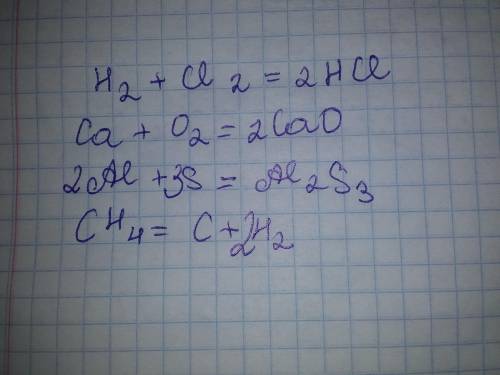 H₂ + Cl₂ = 2HCl
Ca + O₂ = 2CaO
2Al + 3S = Al₂S₃
CH₄ = C + 2H₂